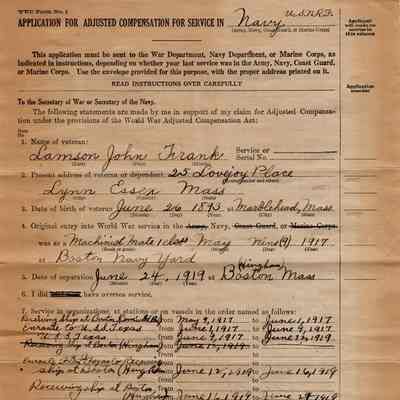 WWC Form No. 1
U.S.N.R.F.
APPLICATION FOR ADJUSTED COMPENSATION FOR SERVICE IN Navy
(Army, Navy, Coast Guard, or Marine Corps)
Applicant
will make no
entries in
this column
This application must be sent to the War Department, Navy Department, or Marine Corps, as
indicated in instructions, depending on whether your last service was in the Army, Navy, Coast Guard,
or Marine Corps. Use the envelope provided for this purpose, with the proper address printed on it.
Application
number
READ INSTRUCTIONS OVER CAREFULLY
To the Secretary of War or Secretary of the Navy.
The following statements are made by me in support of my claim for Adjusted Compensa-
tion under the provisions of the World War Adjusted Compensation Act:
Item
No.
1. Name of veteran:
Lamson John Frank
Service or
Serial No.
(Last) (First) (Middle)
2. Present address of veteran or dependent 25 Lovejoy Place
(Number and street)
Lynn Essex Mass
(City) (County) (State)
3. Date of birth of veteran June 26 1893, at Marblehead, Mass
(Month) (Day) (Year) (City) (State)
4. Original entry into World War service in the Army, Navy, Coast Guard, or Marine Corps
was as a Machinist Mate 1 class May Nine (9) 1917
(Month) (Day) (Year)
at Boston Navy Yard
(Hingham)
5. Date of separation June 24, 1919 at Boston Mass
6. I did have overseas service.
7. Service in organizations, at stations or on vessels in the order named as follows:
Receiving Ship at Boston from May 9, 1917 to June 1, 1917
Enroute to U.S.S Texas from June 1, 1917 to June 9, 1917
U.S.S Texas from June 9, 1917 to June 12, 1919
Receiving Ship at Boston (Hingham) from June 12, 1919 to
Enroute U.S.S Texas to Receiving
ship at Boston (Hingham) from June 12, 1919 to June 16, 1919
Receiving Ship at Boston,
(Hingham) from June 16, 1919 to June 24, 1919